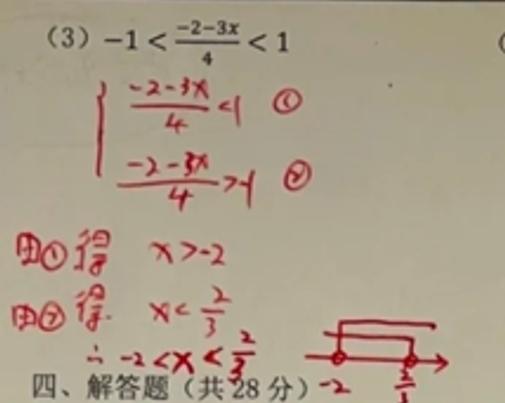 （3）-1 < \frac{-2-3x}{4} < 1
{ \frac{-2-3x}{4} < 1 ①
\frac{-2-3x}{4} > -1 ②
由①得 x > -2
由②得. x < \frac{2}{3}
∴ -2 < x < \frac{2}{3}
-2 \frac{2}{3}
四、解答题（共 28 分）